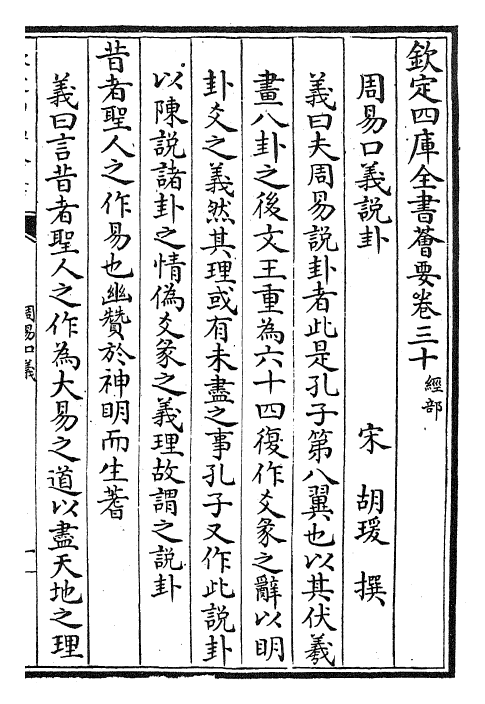 欽定四庫全書薈要卷三十 經部
周易口義說卦 宋 胡瑗 撰
義曰夫周易說卦者此是孔子第八翼也以其伏羲
畫八卦之後文王重為六十四復作爻彖之辭以明
卦爻之義然其理或有未盡之事孔子又作此說卦
以陳說諸卦之情偽爻彖之義理故謂之說卦
昔者聖人之作易也幽贊於神明而生蓍
義曰言昔者聖人之作為大易之道以盡天地之理
周易口義
一